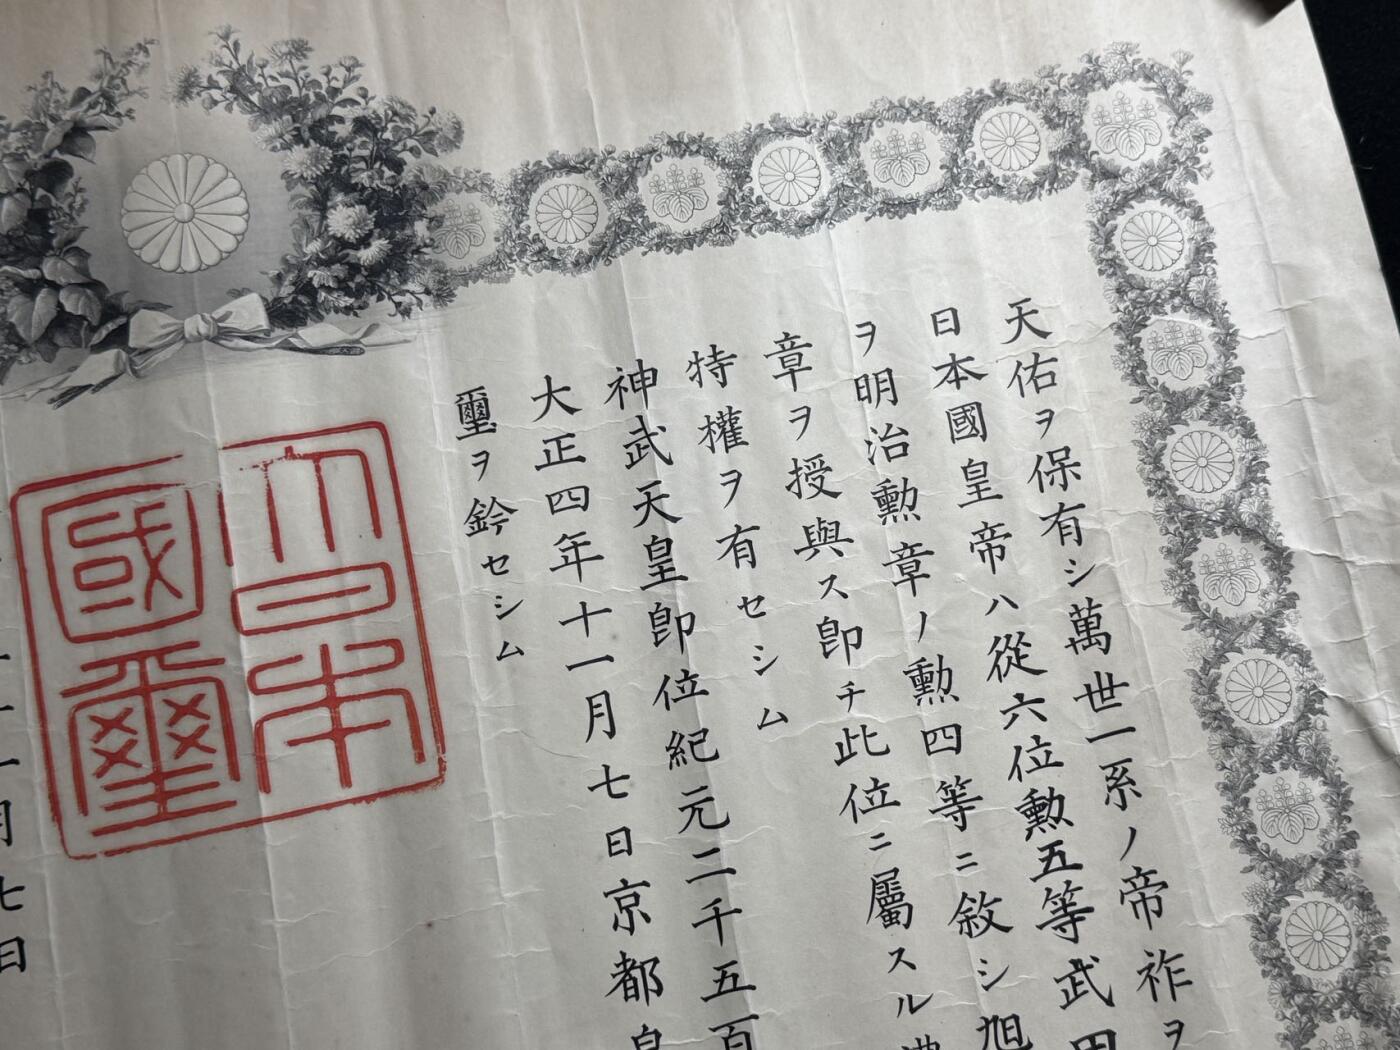 天佑ヲ保有シ萬世一系ノ帝祚ヲ
日本國皇帝ハ從六位勲五等武田
ヲ明治勲章ノ勲四等ニ敘シ旭
章ヲ授與ス卽チ此位ニ屬スル
特權ヲ有セシム
神武天皇卽位紀元二千五百
大正四年十一月七日京都
璽ヲ鈐セシム
大日本
國璽
一月七日